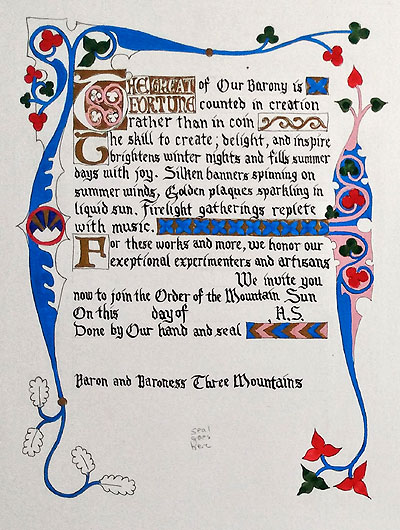 The Great of Our Barony is
Fortune counted in creation
rather than in coin
The skill to create; delight, and inspire
brightens winter nights and fills summer
days with joy. Silken banners spinning on
summer winds, Golden plaques sparkling in
liquid sun. Firelight gatherings replete
with music.
For these works and more, we honor our
exeptional experimenters and artisans
We invite you
now to join the Order of the Mountain Sun
On this day of , A.S.
Done by Our hand and seal
Baron and Baroness Three Mountains
seal
goes
here